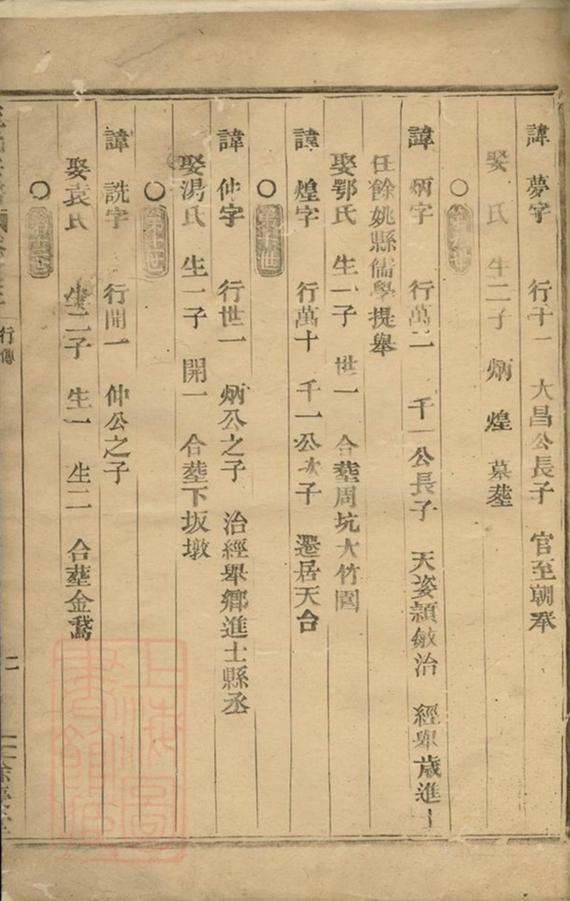 諱 夢字 行十一 大昌公長子 官至朝奉
娶 氏 生二子 炳 煌 墓塟
○
諱 炳字 行萬二 千一公長子 天姿頴敏治 經舉歲進士
任餘姚縣儒學提舉
娶鄂氏 生一子 世一 合塟周坑大竹園
諱 煌字 行萬十 千一公次子 遷居天台
○
諱 仲字 行世一 炳公之子 治經舉鄉進士縣丞
娶湯氏 生一子 開一 合塟下坂墩
○
諱 詵字 行開一 仲公之子
娶袁氏 生二子 生一 生二 合塟金鵞
○
行傳
二
上海圖書館藏